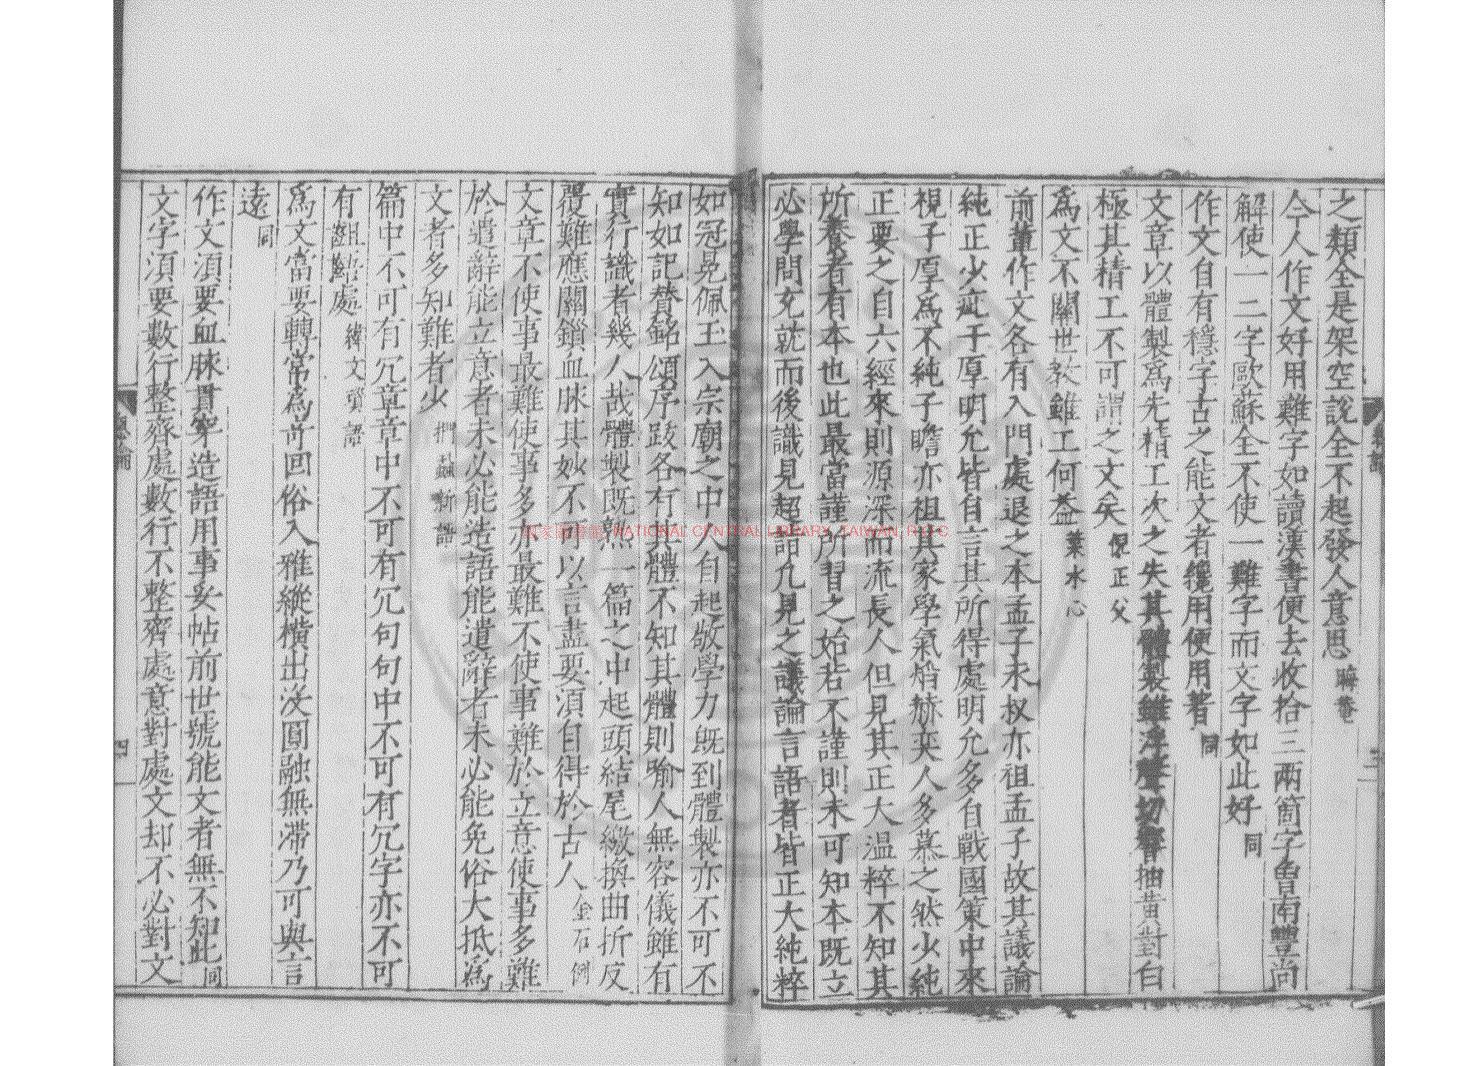 之類全是架空說全不起發人意思晦菴
今人作文好用難字如讀漢書便去收拾三兩箇字曾南豐尚
解使一二字歐蘇全不使一難字而文字如此好同
作文自有穩字古之能文者纔用便用著同
文章以體製為先精工次之失其體製雖浮聲切響抽黄對白
極其精工不可謂之文矣倪正父
為文不關世教雖工何益葉水心
前輩作文各有入門處退之本孟子永叔亦祖孟子故其議論
純正少疵子厚明允皆自言其所得處明允多自戰國策中來
視子厚為不純子瞻亦祖其家學氣熖赫奕人多慕之然少純
正要之自六經來則源深而流長人但見其正大温粹不知其
所養者有本也此最當謹所習之始若不謹則未可知本既立
必學問充就而後識見超詣凡見之議論言語者皆正大純粹
如冠冕佩玉入宗廟之中人自起敬學力既到體製亦不可不
知如記賛銘頌序跋各有其體不知其體則喻人無容儀雖有
實行識者幾人哉體製既熟一篇之中起頭結尾繳換曲折反
覆難應關鎖血脉其妙不可以言盡要湏自得於古人金石例
文章不使事最難使事多亦最難不使事難於立意使事多難
於遣辭能立意者未必能造語能遣辭者未必能免俗大抵為
文者多知難者少捫蝨新語
篇中不可有冗章章中不可有冗句句中不可有冗字亦不可
有齟齬處緯文瑣語
為文當要轉常為竒回俗入雅縱横出没圓融無滯乃可與言
遠同
作文湏要血脉貫穿造語用事妥帖前世號能文者無不知此同
文字湏要數行整齊處數行不整齊處意對處文却不必對文
總論
四
國家圖書館 NATIONAL CENTRAL LIBRARY, TAIWAN, R.O.C